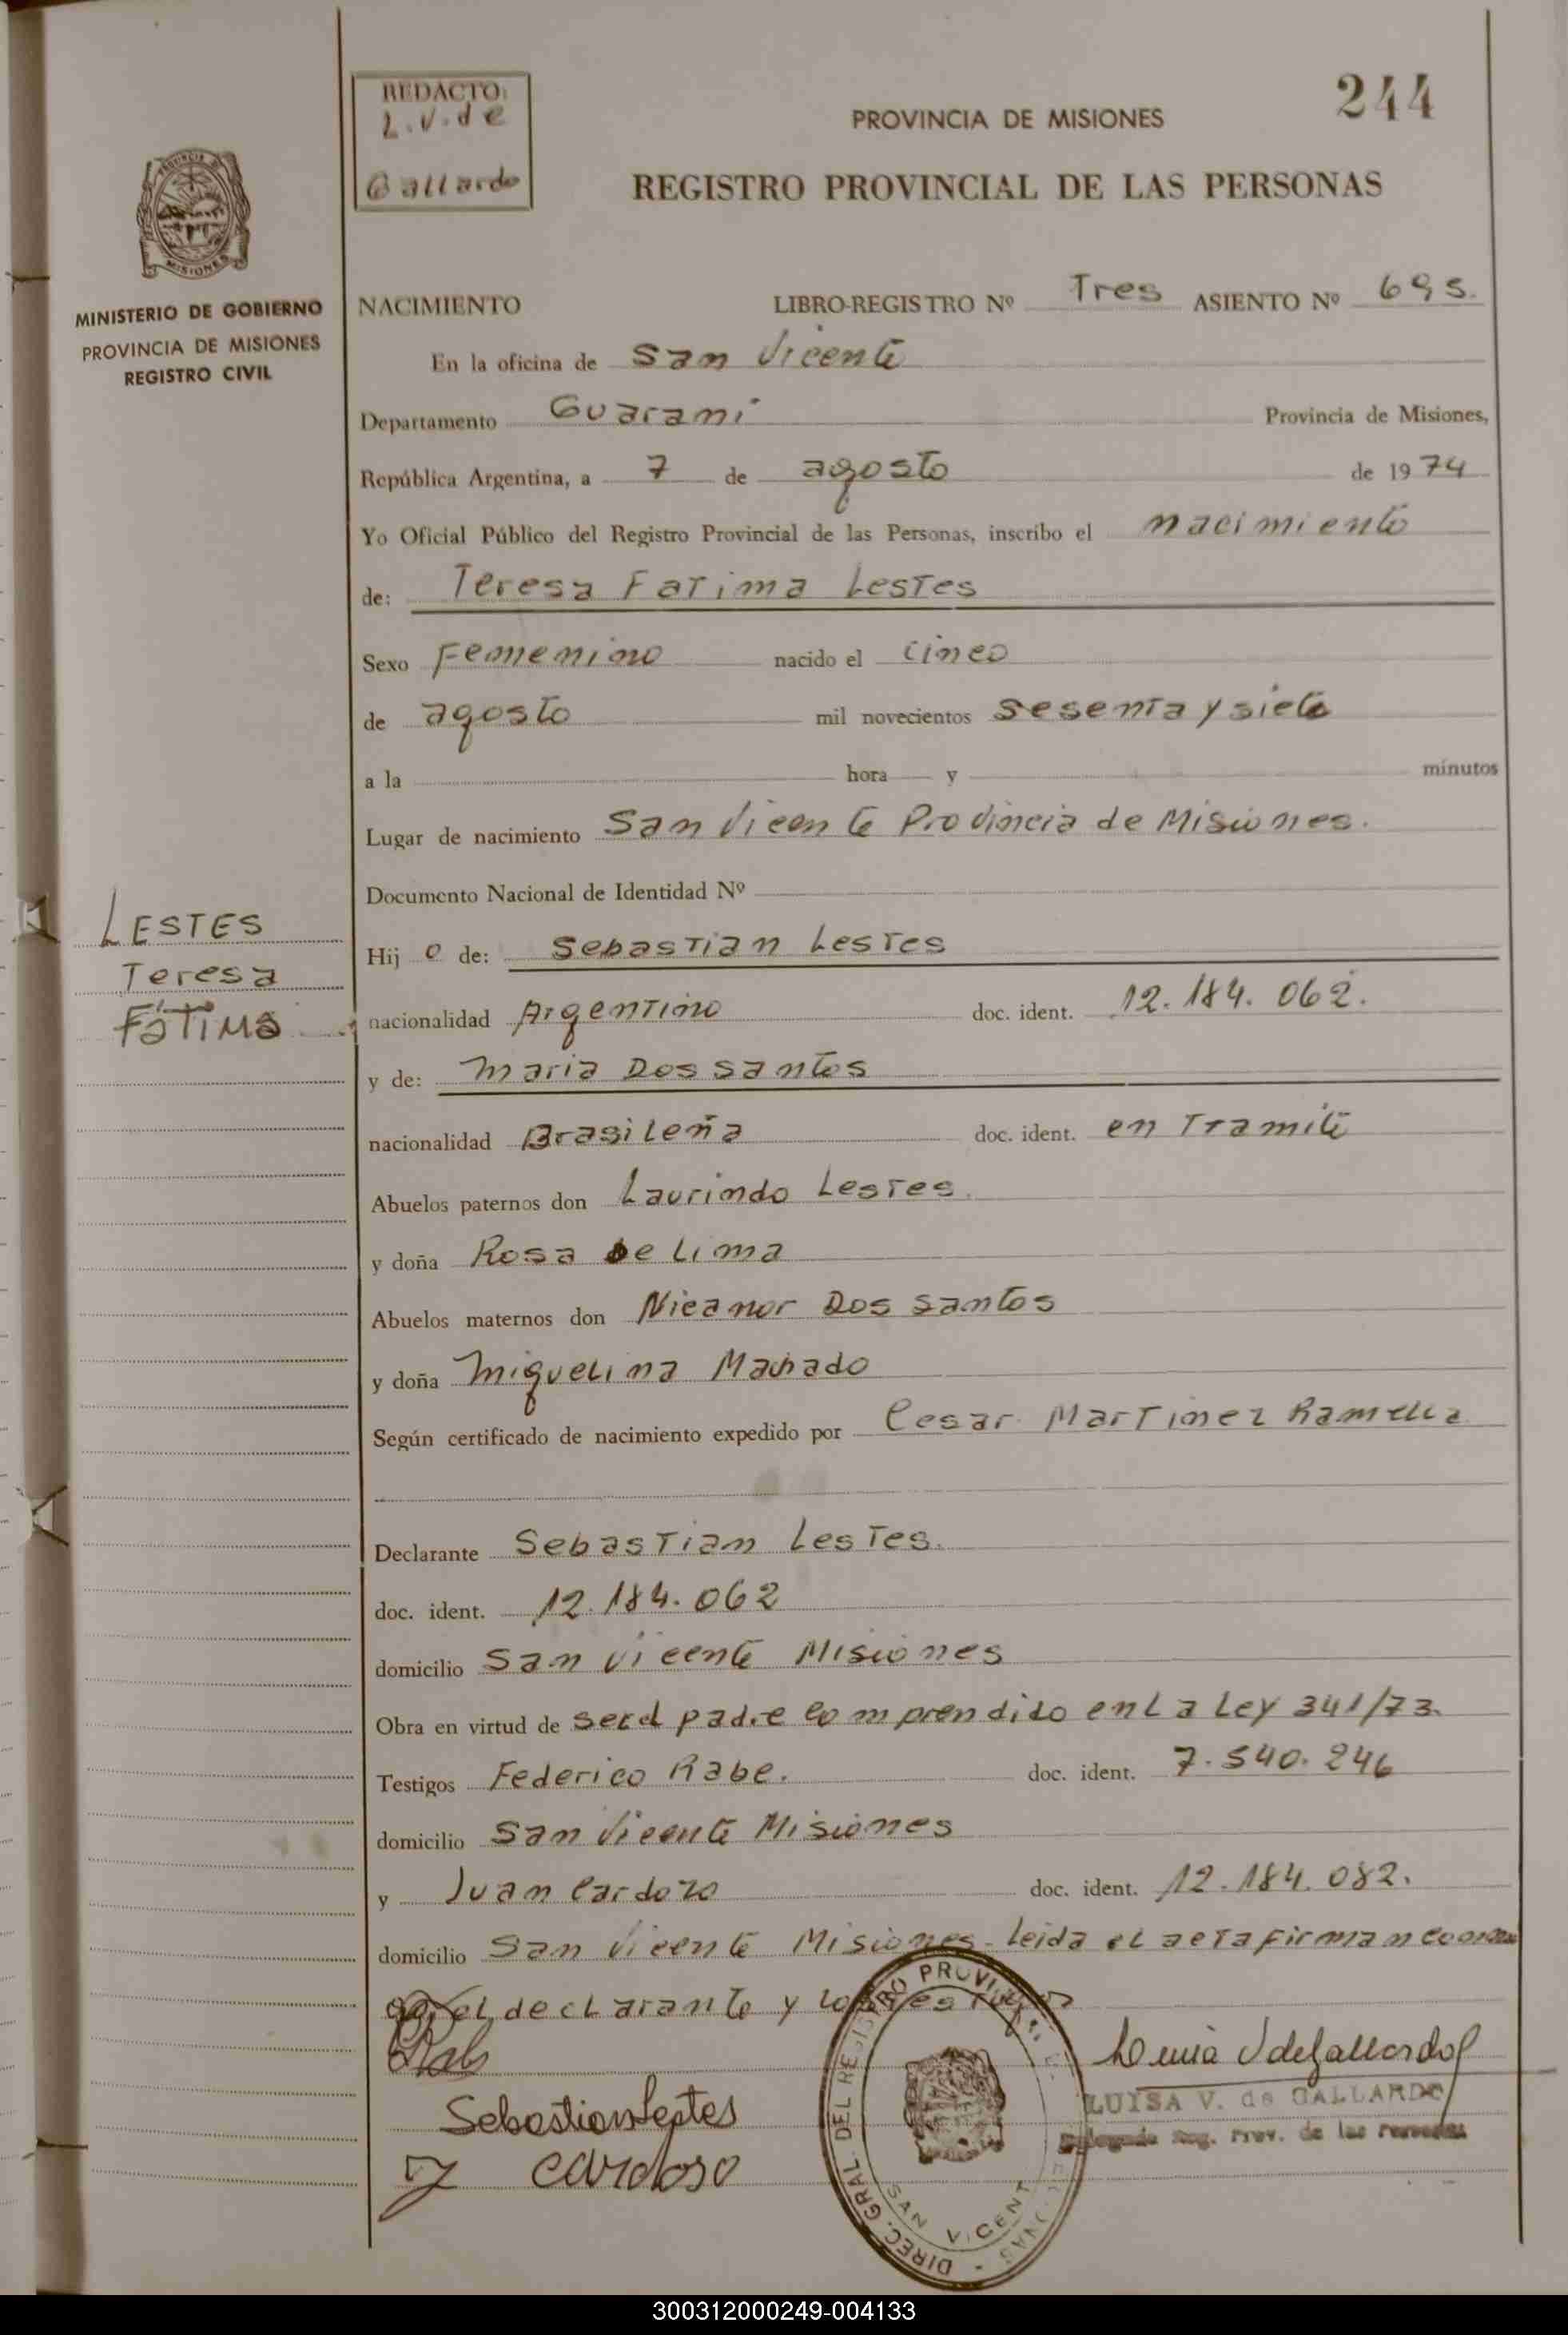 244
REDACTO:
L.V. de
Gallardo
PROVINCIA DE MISIONES
REGISTRO PROVINCIAL DE LAS PERSONAS
PROVINCIA DE
MISIONES
MINISTERIO DE GOBIERNO
PROVINCIA DE MISIONES
REGISTRO CIVIL
NACIMIENTO LIBRO-REGISTRO Nº Tres ASIENTO Nº 695.
En la oficina de San Vicente
Departamento Guarani Provincia de Misiones,
República Argentina, a 7 de agosto de 1974
Yo Oficial Público del Registro Provincial de las Personas, inscribo el nacimiento
de: Teresa Fatima Lestes
Sexo Femenino nacido el cinco
de agosto mil novecientos sesenta y siete
a la hora y minutos
Lugar de nacimiento San Vicente Provincia de Misiones.
Documento Nacional de Identidad Nº
LESTES
Teresa
Fátima
Hij o de: Sebastian Lestes
nacionalidad Argentino doc. ident. 12.184.062.
y de: Maria Dos santos
nacionalidad Brasileña doc. ident. en Tramite
Abuelos paternos don Laurindo Lestes.
y doña Rosa De Lima
Abuelos maternos don Nicanor Dos santos
y doña Miguelina Machado
Según certificado de nacimiento expedido por Cesar Martinez Ramella
Declarante Sebastian Lestes.
doc. ident. 12.184.062
domicilio San Vicente Misiones
Obra en virtud de ser el padre comprendido en La Ley 341/73.
Testigos Federico Rabe. doc. ident. 7.540.246
domicilio San Vicente Misiones
y Juan Cardozo doc. ident. 12.184.082.
domicilio San Vicente Misiones - Leida el acta firman con
el declarante y los testigos
Sebastian Lestes
J Cardoso
Luisa V de Gallardo
LUISA V. de GALLARDO
Delegada Reg. Prov. de las Personas
DIREC. GRAL. DEL REGISTRO PROVINCIAL
SAN VICENTE
300312000249-004133